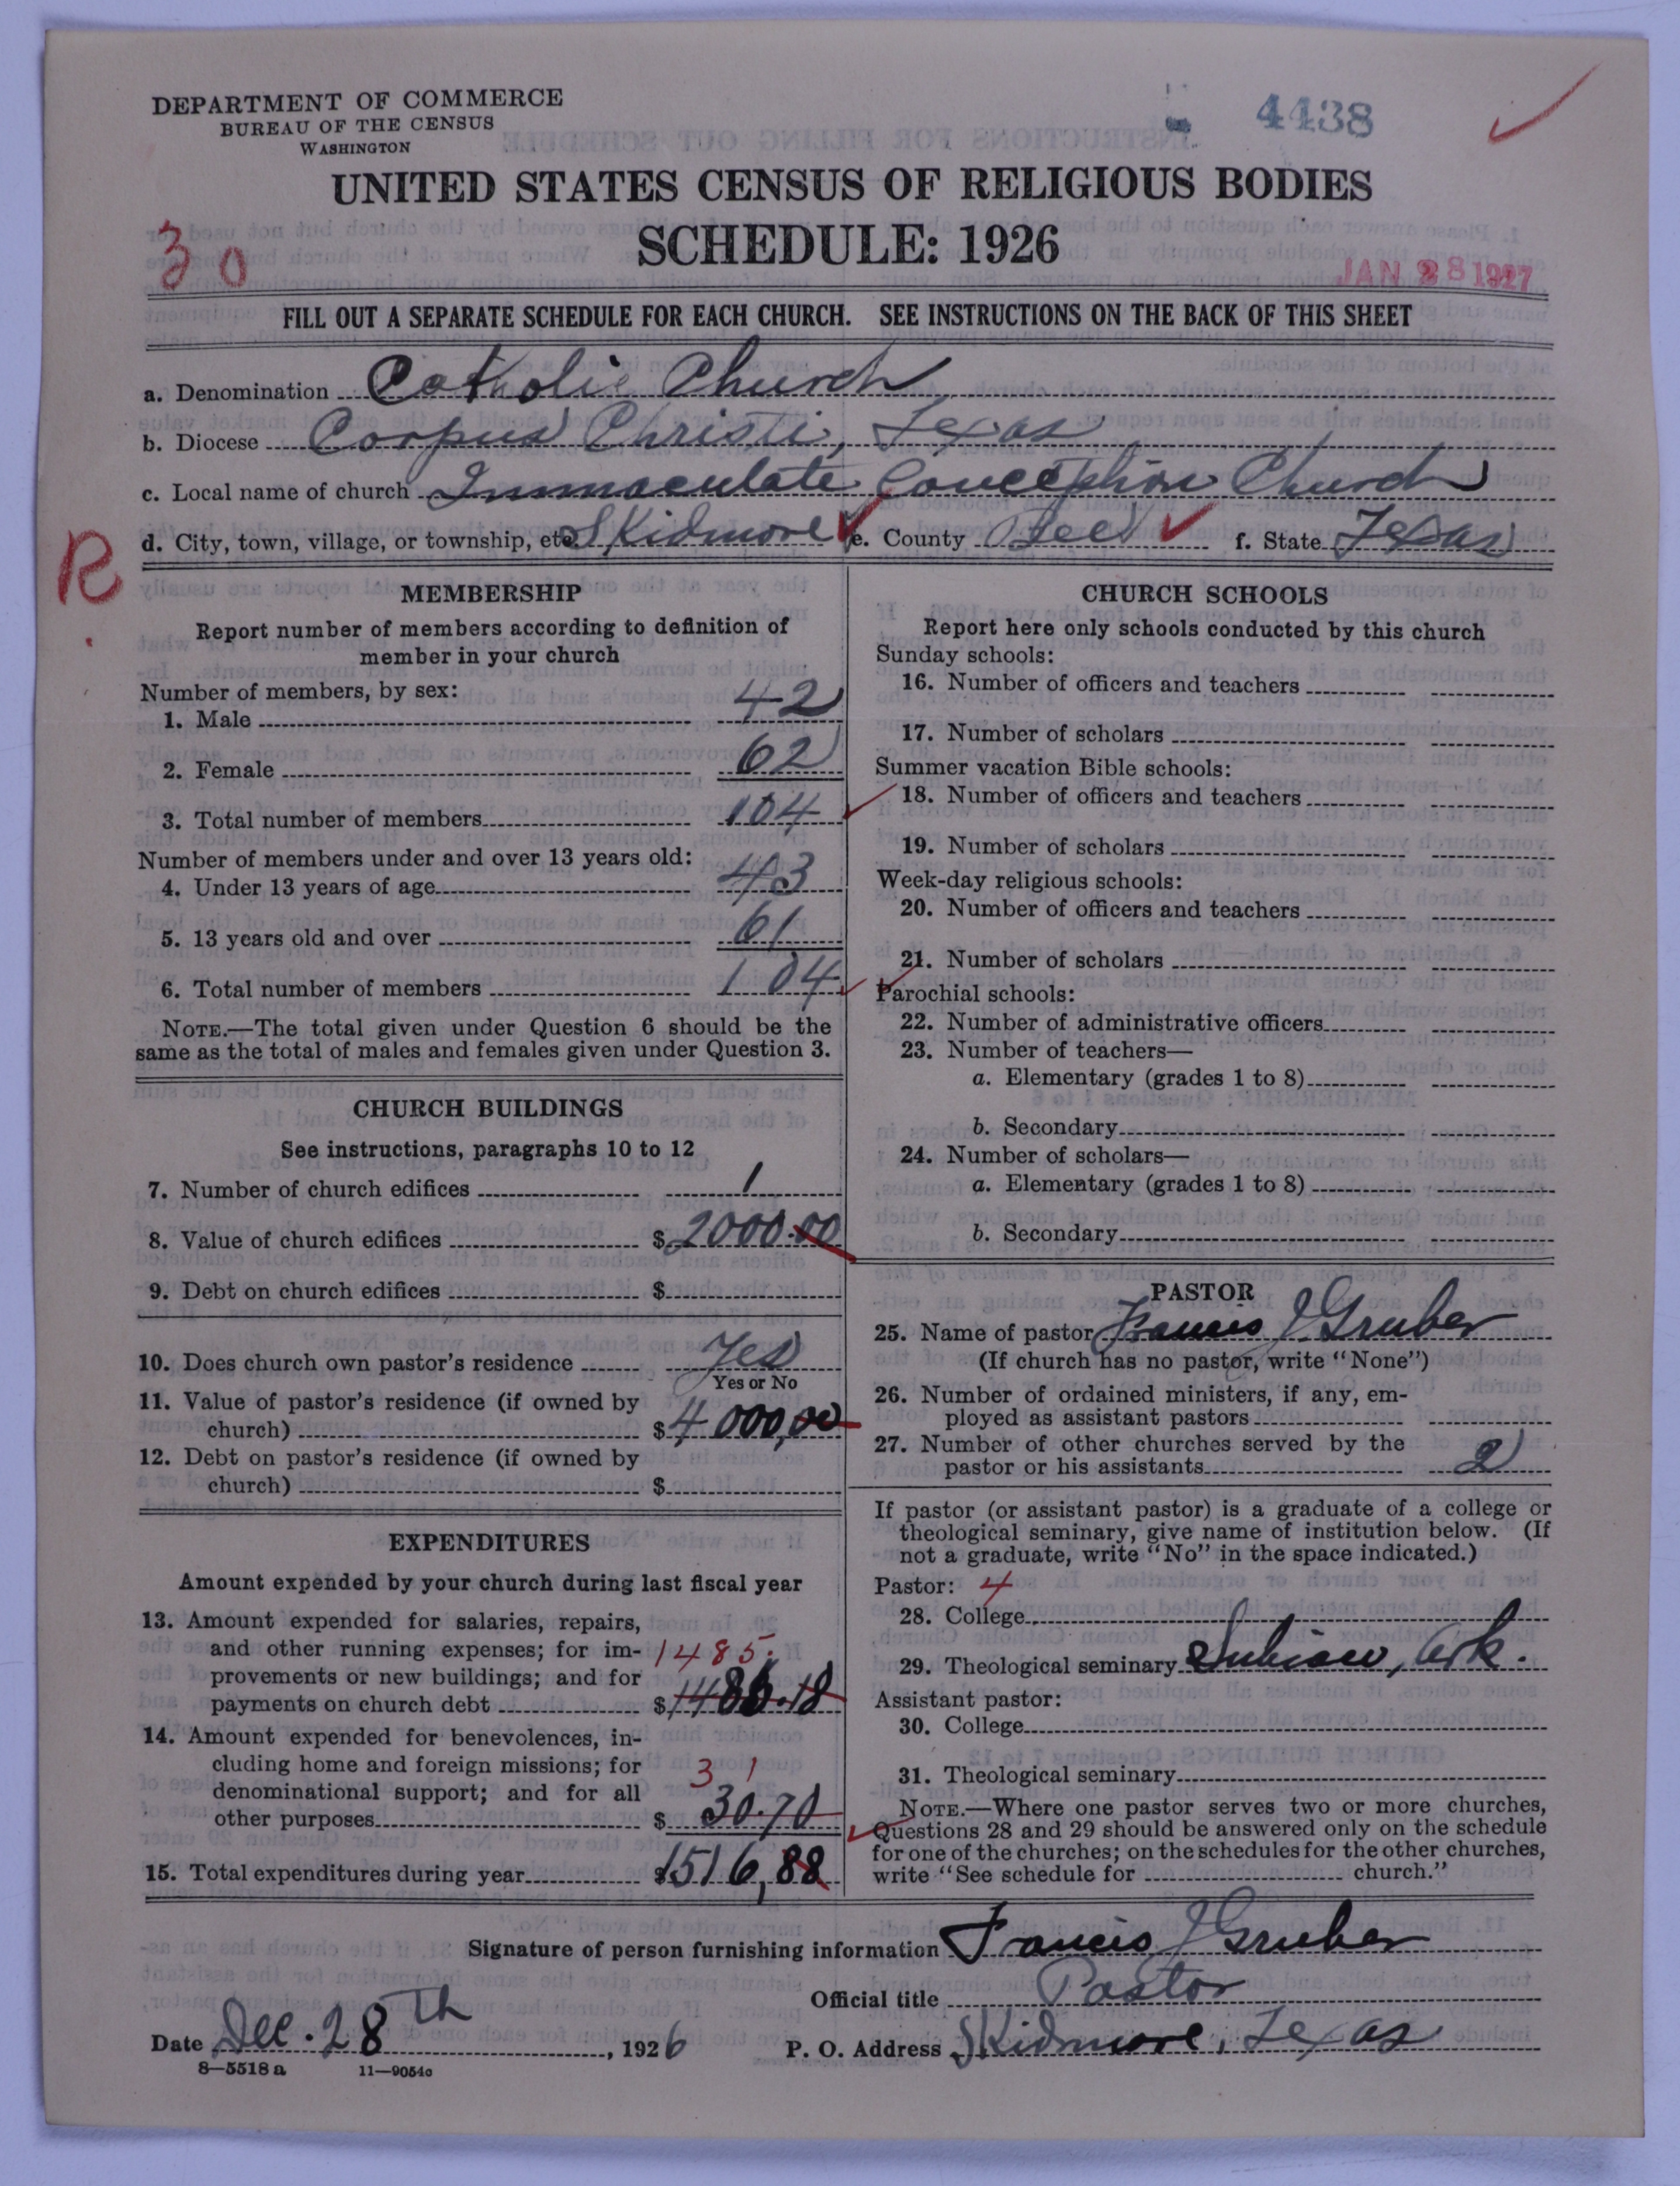 DEPARTMENT OF COMMERCE
BUREAU OF THE CENSUS
WASHINGTON
4438
UNITED STATES CENSUS OF RELIGIOUS BODIES
SCHEDULE: 1926
30
JAN 28 1927
FILL OUT A SEPARATE SCHEDULE FOR EACH CHURCH. SEE INSTRUCTIONS ON THE BACK OF THIS SHEET
a. Denomination Catholic Church
b. Diocese Corpus Christi, Texas
c. Local name of church Immaculate Conception Church
d. City, town, village, or township, etc. Skidmore e. County Bee f. State Texas
R
MEMBERSHIP
Report number of members according to definition of
member in your church
Number of members, by sex:
1. Male 42
2. Female 62
3. Total number of members 104
Number of members under and over 13 years old:
4. Under 13 years of age 43
5. 13 years old and over 61
6. Total number of members 104
NOTE.—The total given under Question 6 should be the
same as the total of males and females given under Question 3.
CHURCH BUILDINGS
See instructions, paragraphs 10 to 12
7. Number of church edifices 1
8. Value of church edifices $ 2000.00
9. Debt on church edifices $
10. Does church own pastor's residence Yes
Yes or No
11. Value of pastor's residence (if owned by
church) $ 4000,00
12. Debt on pastor's residence (if owned by
church) $
EXPENDITURES
Amount expended by your church during last fiscal year
13. Amount expended for salaries, repairs,
and other running expenses; for im- 1485.
provements or new buildings; and for
payments on church debt $ 1486.18
14. Amount expended for benevolences, in-
cluding home and foreign missions; for 31
denominational support; and for all
other purposes $ 30.70
15. Total expenditures during year $ 1516,88
CHURCH SCHOOLS
Report here only schools conducted by this church
Sunday schools:
16. Number of officers and teachers
17. Number of scholars
Summer vacation Bible schools:
18. Number of officers and teachers
19. Number of scholars
Week-day religious schools:
20. Number of officers and teachers
21. Number of scholars
Parochial schools:
22. Number of administrative officers
23. Number of teachers—
a. Elementary (grades 1 to 8)
b. Secondary
24. Number of scholars—
a. Elementary (grades 1 to 8)
b. Secondary
PASTOR
25. Name of pastor Francis J. Gruber
(If church has no pastor, write "None")
26. Number of ordained ministers, if any, em-
ployed as assistant pastors
27. Number of other churches served by the
pastor or his assistants 2
If pastor (or assistant pastor) is a graduate of a college or
theological seminary, give name of institution below. (If
not a graduate, write "No" in the space indicated.)
Pastor: 4
28. College
29. Theological seminary Subiaco, Ark.
Assistant pastor:
30. College
31. Theological seminary
NOTE.—Where one pastor serves two or more churches,
Questions 28 and 29 should be answered only on the schedule
for one of the churches; on the schedules for the other churches,
write "See schedule for church."
Signature of person furnishing information Francis J Gruber
Official title Pastor
Date Dec. 28th, 1926 P. O. Address Skidmore, Texas
8—5518a 11—9054c